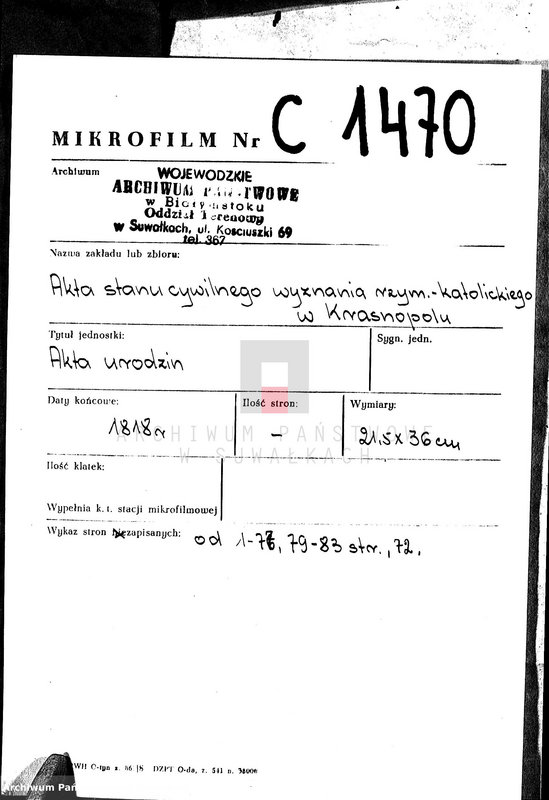 MIKROFILM Nr C 1470
Archiwum
WOJEWODZKIE
ARCHIWUM PAŃSTWOWE
w Białymstoku
Oddział Terenowy
w Suwałkach, ul. Kosciuszki 69
tel. 367
Nazwa zakładu lub zbioru:
Akta stanu cywilnego wyznania rzym.-katolickiego
w Krasnopolu
Tytuł jednostki:
Sygn. jedn.
Akta urodzin
Daty końcowe:
Ilość stron:
Wymiary:
1818 r
–
21,5 x 36 cm
ARCHIWUM PAŃSTWOWE
W SUWAŁKACH
Ilość klatek:
Wypełnia k. t. stacji mikrofilmowej
Wykaz stron zapisanych: od 1-76, 79-83 str., 72.
DZPT O-da, z. 541 n.
Archiwum Pań